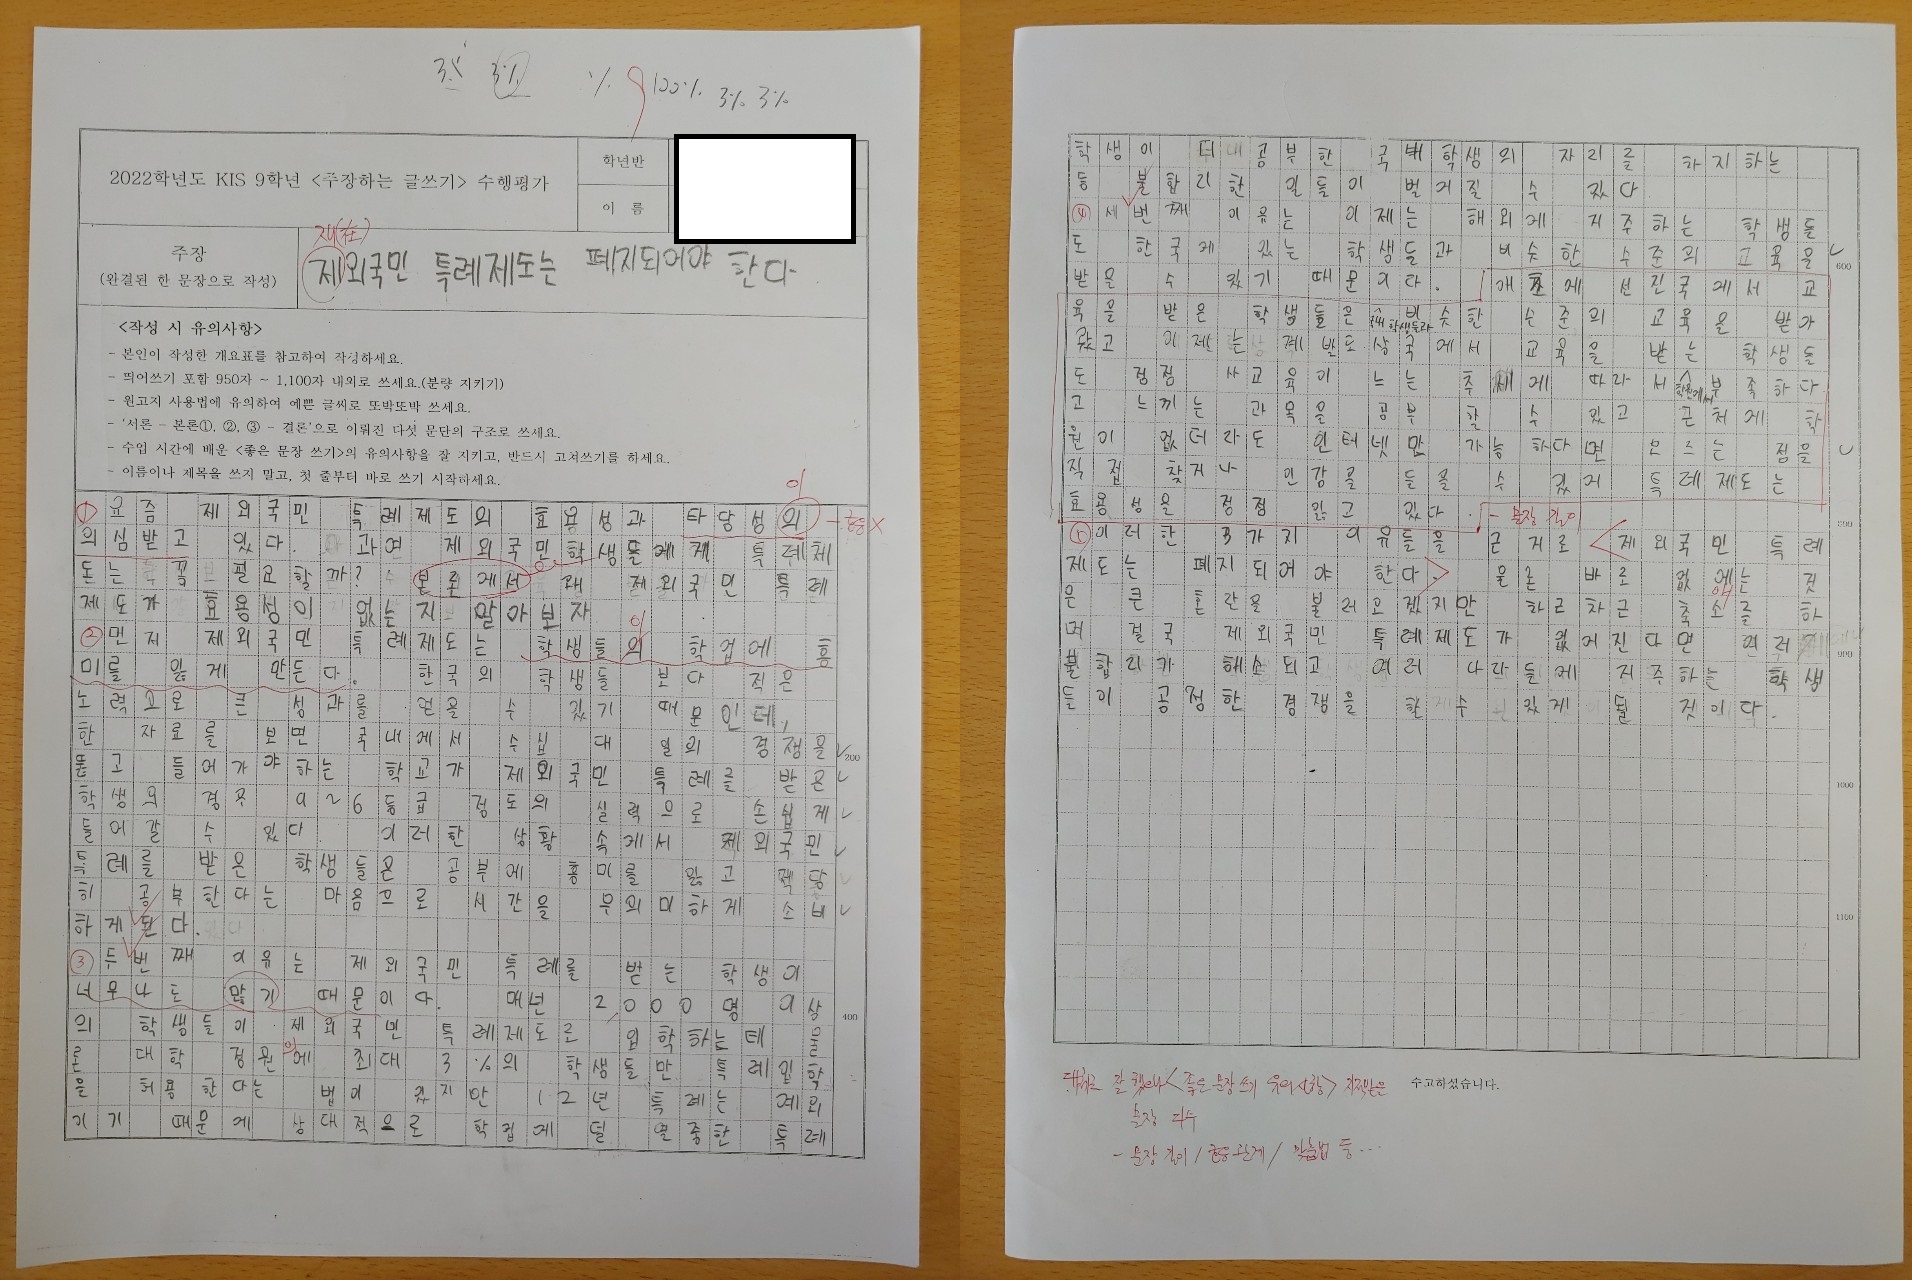 3% 3%
% 100% 3% 3%
2022학년도 KIS 9학년 <주장하는 글쓰기> 수행평가
학년반
이 름
주장
(완결된 한 문장으로 작성)
재(在)
제외국민 특례제도는 폐지되어야 한다
<작성 시 유의사항>
- 본인이 작성한 개요표를 참고하여 작성하세요.
- 띄어쓰기 포함 950자 ~ 1,100자 내외로 쓰세요.(분량 지키기)
- 원고지 사용법에 유의하여 예쁜 글씨로 또박또박 쓰세요.
- '서론 - 본론①, ②, ③ - 결론'으로 이뤄진 다섯 문단의 구조로 쓰세요.
- 수업 시간에 배운 <좋은 문장 쓰기>의 유의사항을 잘 지키고, 반드시 고쳐쓰기를 하세요.
- 이름이나 제목을 쓰지 말고, 첫 줄부터 바로 쓰기 시작하세요.
이
① 요즘 제외국민 특례제도의 효용성과 타당성의 - 호응 X
의심받고 있다. 과연 제외국민학생들에게 특례제
도는 꼭 필요할까? 본론에서 왜 제외국민 특례
제도가 효용성이 없는지 알아보자.
이
② 먼저 제외국민 특례제도는 학생들의 학업에 흥
미를 잃게 만든다. 한국의 학생들 보다 적은
노력으로 큰 성과를 얻을 수 있기 때문인데,
한 자료를 보면 국내에서 수십 대 일의 경쟁을
200
뚫고 들어가야하는 학교가 제외국민 특례를 받은
학생의 경우 526등급 정도의 실력으로 손쉽게
들어갈 수 있다 이러한 상황 속에서 제외국민
특례를 받은 학생들은 공부에 흥미를 잃고 적당
히 공부한다는 마음으로 시간을 무의미하게 소비
하게된다.
③ 두번째 이유는 제외국민 특례를 받는 학생이
너무나도 많기 때문이다. 매년 2,000명 이상
400
의 학생들이 제외국민 특례제도로 입학하는데 물
의
론 대학 정원에 최대 3%의 학생들만 특례입학
을 허용한다는 법이 있지만 12년 특례는 예외
이기 때문에 상대적으로 학업에 덜 열중한 특례
학생이 더 공부한 국내학생의 자리를 차지하는
등 불합리한 일들이 벌어질 수 있다
④ 세번째 이유는 이제는 해외에 거주하는 학생들
도 한국에 있는 학생들과 비슷한 수준의 교육을
600
받을 수 있기 때문이다. 애초에 선진국에서 교
육을 받은 학생들은 비슷한 수준의 교육을 받아
국내 학생들과
왔고 이제는 개발도상국에서 교육을 받는 학생들
도 점점 사교육이 느는 추세에 따라서 부족하다
학원에서
고 느끼는 과목을 공부할 수 있고 근처에 학
원이 없더라도 인터넷만 가능하다면 모르는 점을
직접 찾거나 인강을 들을 수 있어 특례제도는
효용성을 점점 잃고 있다.
- 문장 길이
⑤ 이러한 3가지 이유들을 근거로 제외국민 특례
제도는 폐지되어야 한다. 물론 바로 없에는 것
애
은 큰 혼란을 불러오겠지만 차근차근 축소를 하
며 결국 제외국민 특례제도가 없어진다면 여러
900
불합리가 해소되고 여러 나라들에 거주하는 학생
들이 공정한 경쟁을 할수 있게 될 것이다.
1000
1100
대체로 잘 했으나 <좋은 문장 쓰기 유의사항> 지적받은
문장 다수
- 문장 길이 / 호응 관계 / 맞춤법 등...
수고하셨습니다.